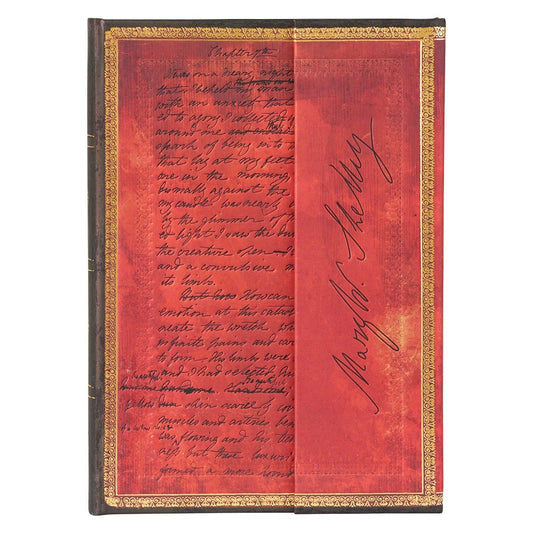 Chapter 7th
It was on a dreary night
that I beheld my man
with an anxiet that
ed to agony, I collect
around me
spark of being into
that lay at my feet
one in the morning,
dismally against the
my candle was nearly
by the glimmer of
ed light I saw the du
the creature open
and a convulsive m
its limbs.
But how How can
emotion at this catas
create the wretch wh
infinite pains and car
to form His limbs were
and I had selected
handsome
skin scarcely cov
muscles and arteries ben
was flowing and his
but these luxuri
formed a more horri
Mary W. Shelley